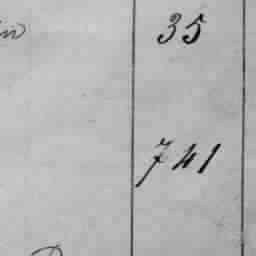 35
741